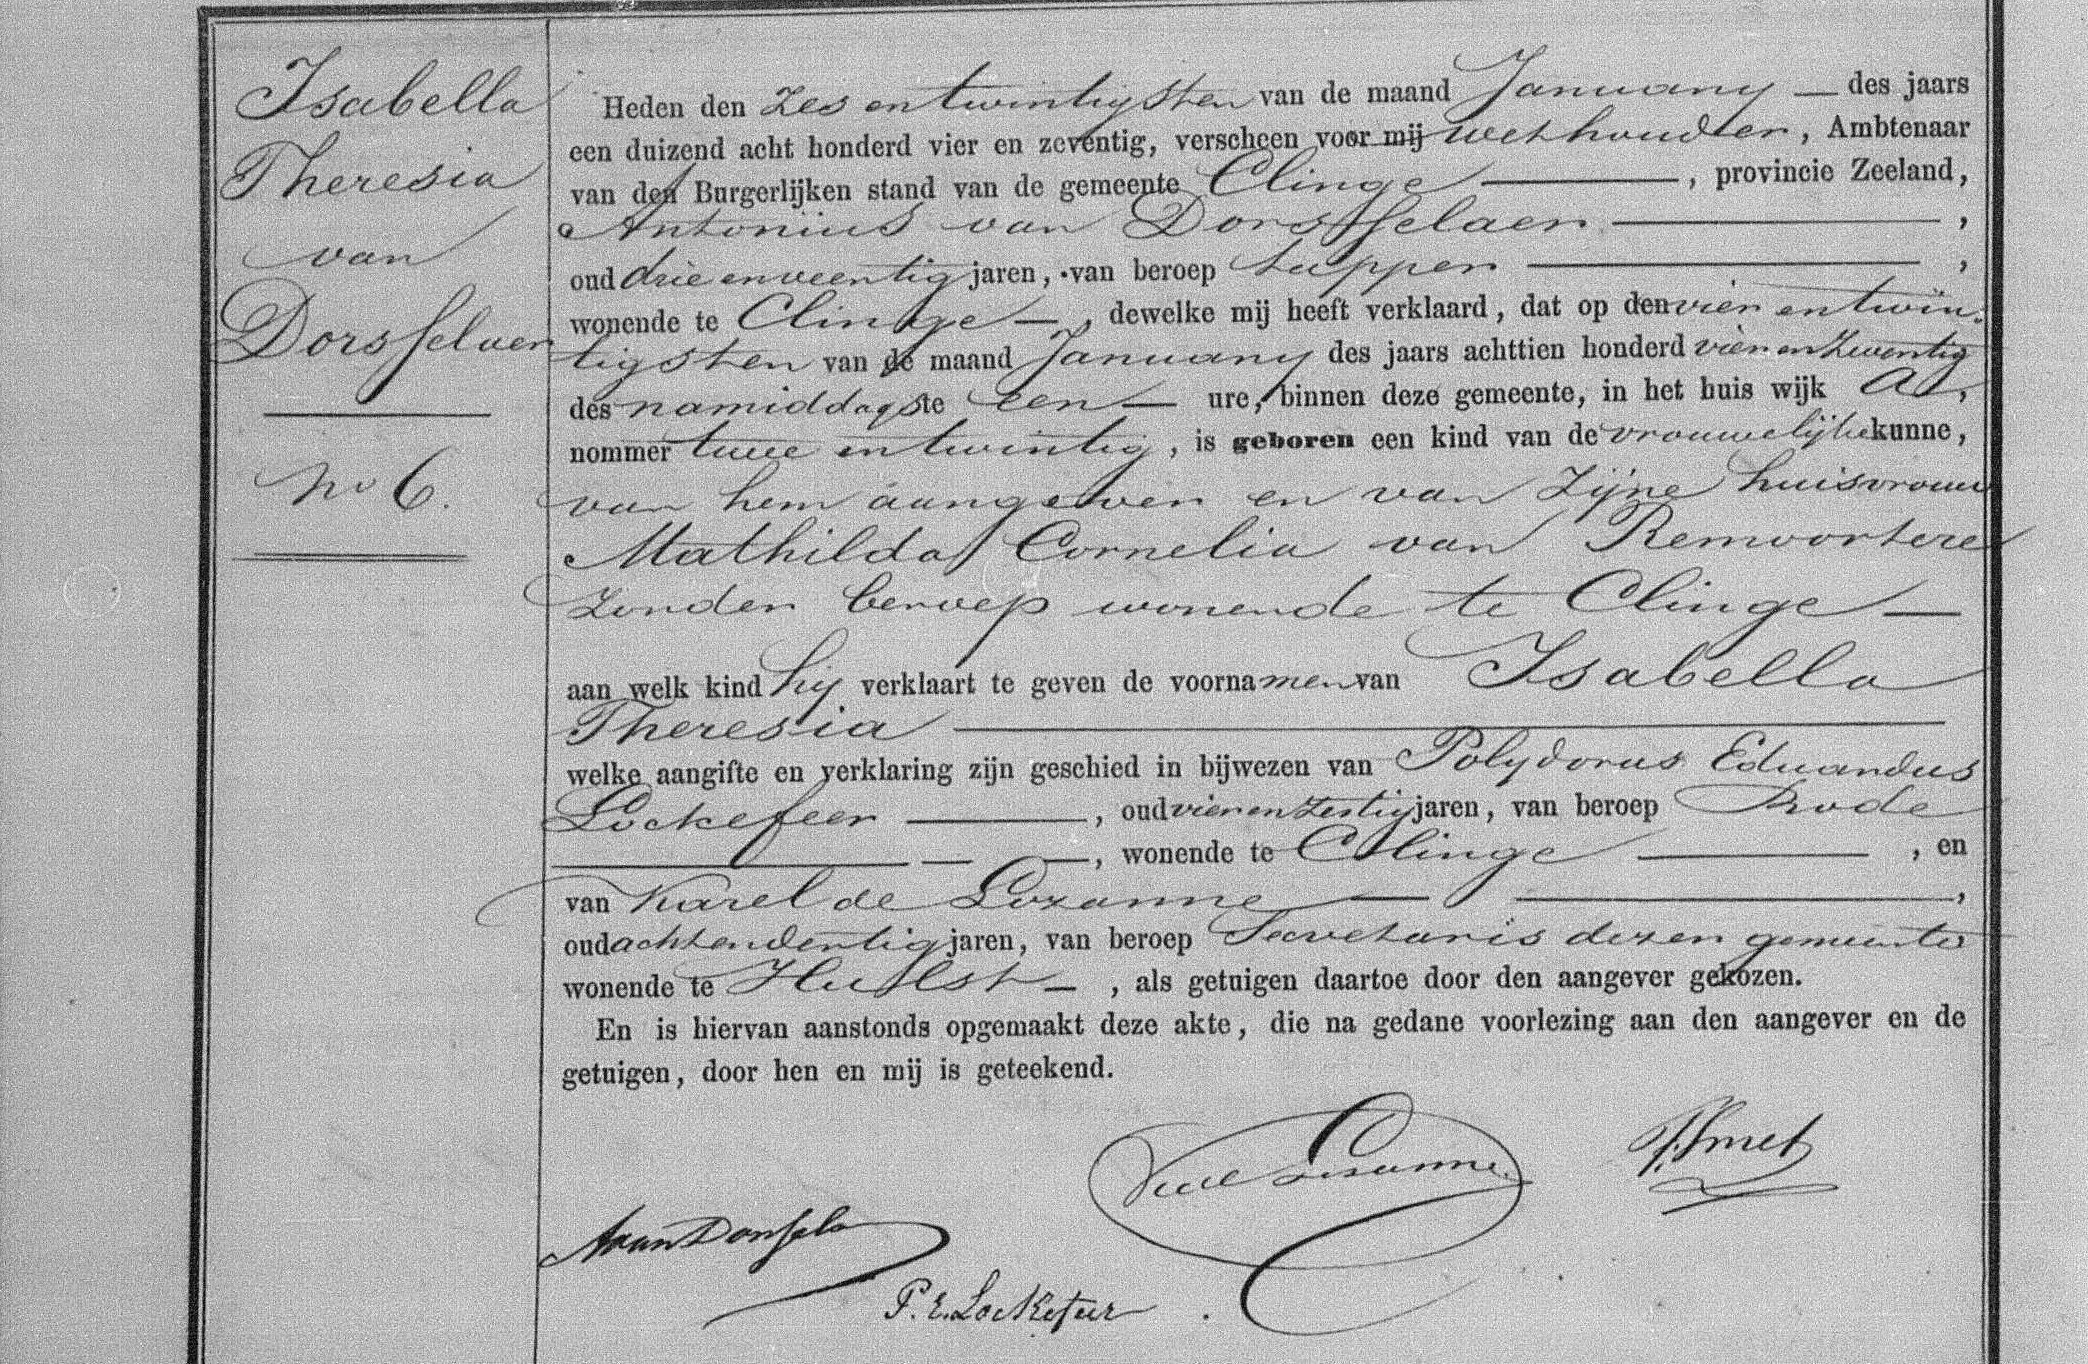 Isabella
Theresia
van
Dorsselaer
No 6.
Heden den zes en twintigsten van de maand January des jaars
een duizend acht honderd vier en zeventig, verscheen voor mij wethouder, Ambtenaar
van den Burgerlijken stand van de gemeente Clinge, provincie Zeeland,
Antonius van Dorsselaer,
oud drie en veertig jaren, van beroep tapper,
wonende te Clinge, dewelke mij heeft verklaard, dat op den vier en twin-
tigsten van de maand January des jaars achttien honderd vier en zeventig
des namiddags te een ure, binnen deze gemeente, in het huis wijk A,
nommer twee en twintig, is geboren een kind van de vrouwelijke kunne,
van hem aangever en van zijne huisvrouw
Mathilda Cornelia van Remoortere
zonder beroep wonende te Clinge
aan welk kind hij verklaart te geven de voornamen van Isabella
Theresia
welke aangifte en verklaring zijn geschied in bijwezen van Polydorus Eduardus
Lockefeer, oud vier en zestig jaren, van beroep Bode
, wonende te Clinge, en
van Karel de Lozanne,
oud acht en dertig jaren, van beroep Secretaris dezer gemeente
wonende te Hulst, als getuigen daartoe door den aangever gekozen.
En is hiervan aanstonds opgemaakt deze akte, die na gedane voorlezing aan den aangever en de
getuigen, door hen en mij is geteekend.
P. Smet
A van Dorsela
P. E. Lockefeer